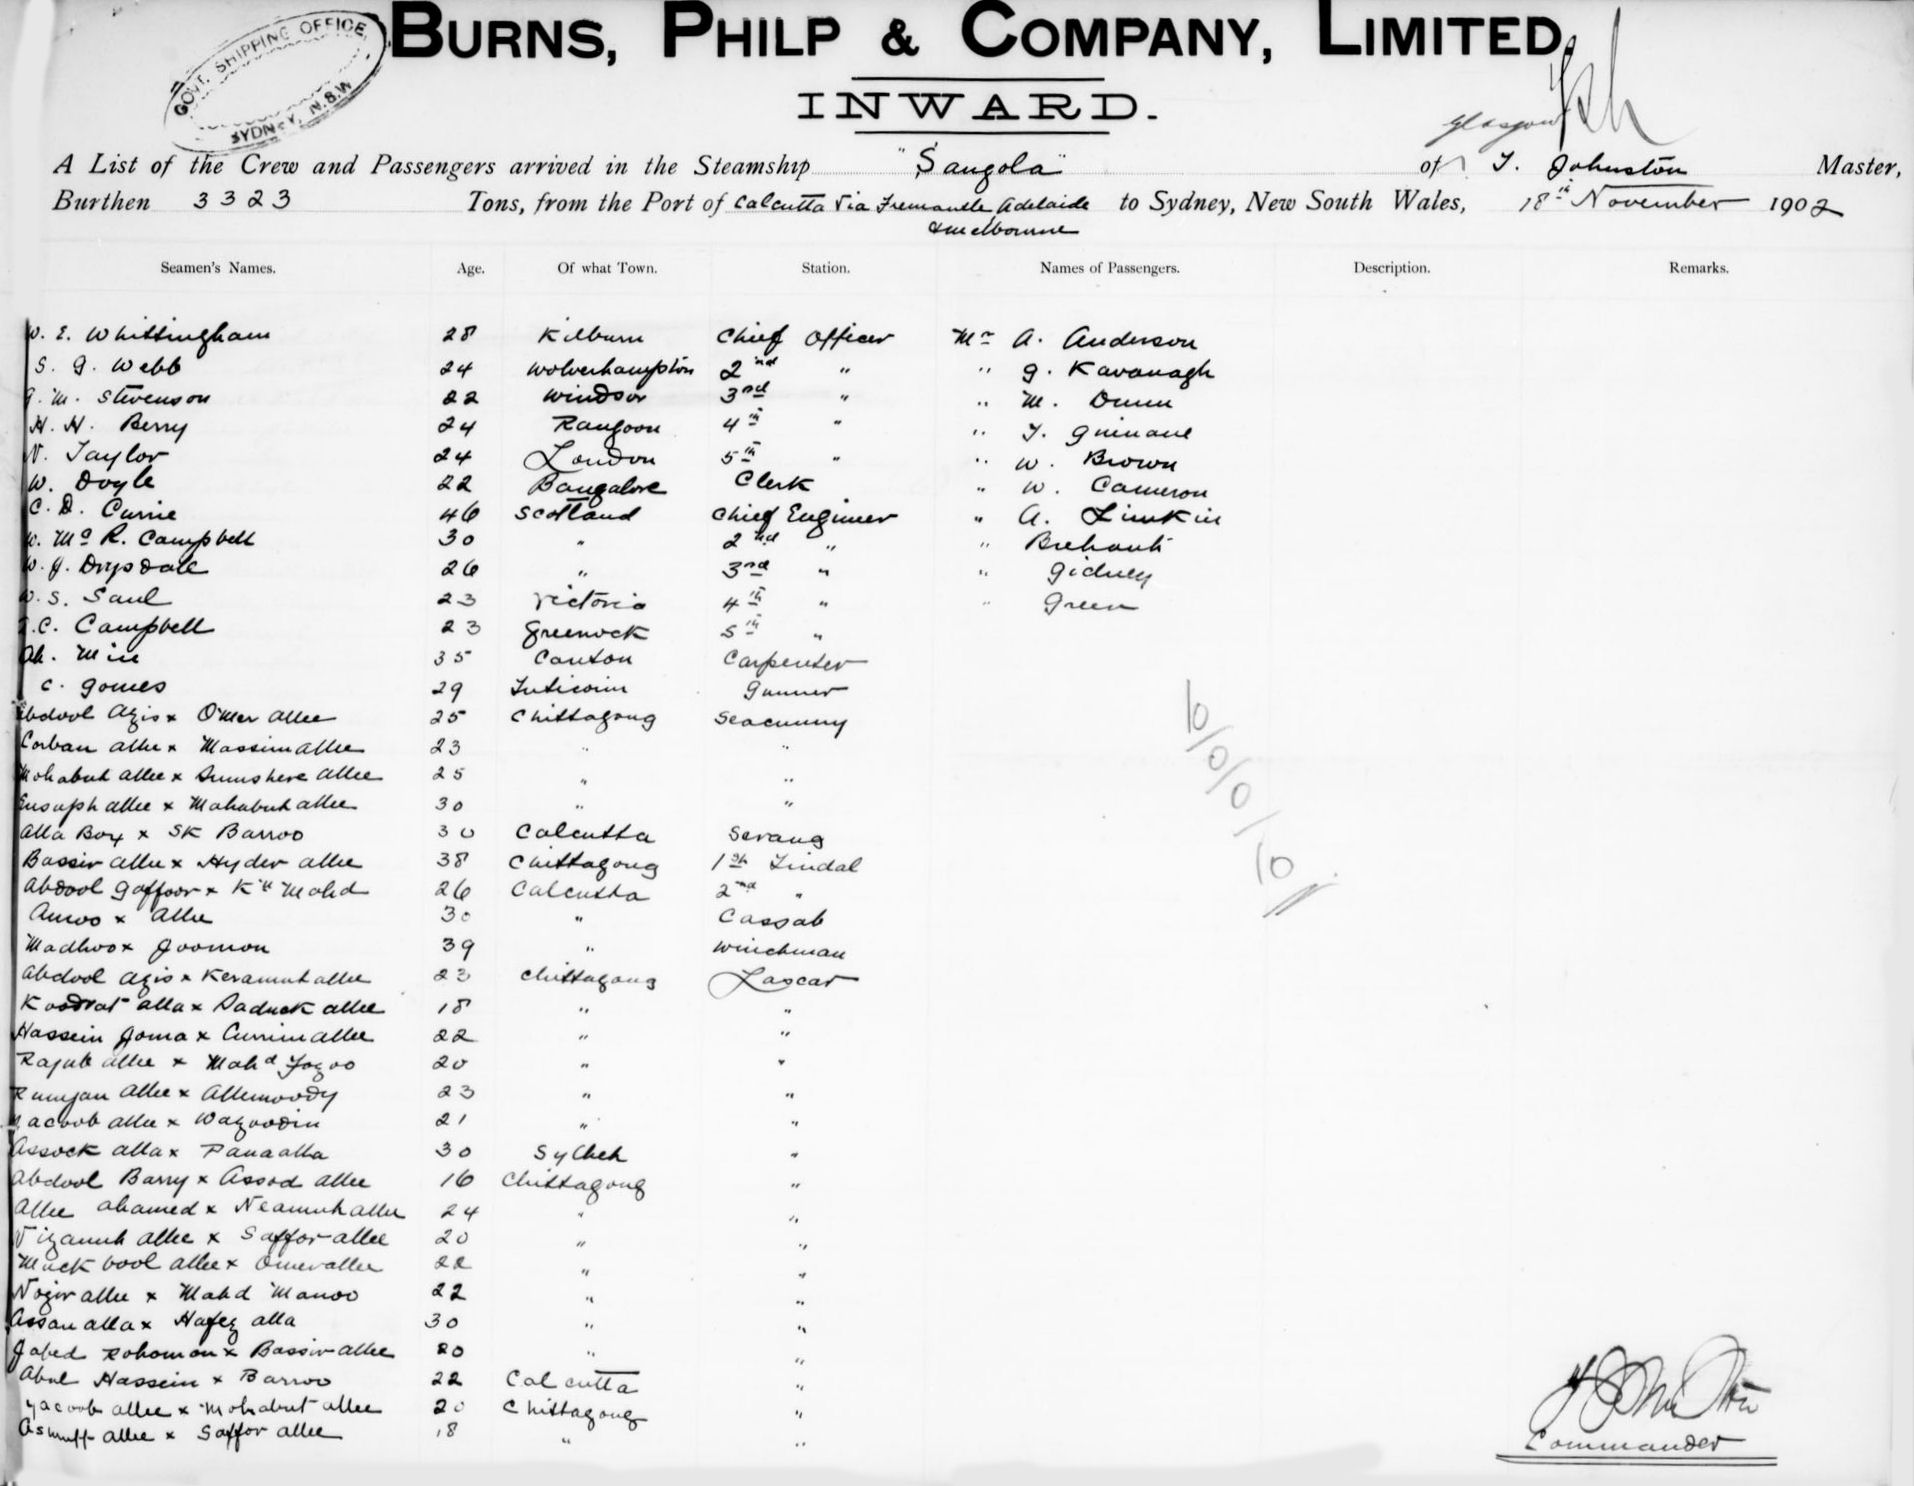 BURNS, PHILP & COMPANY, LIMITED.
GOVT. SHIPPING OFFICE
SYDNEY, N.S.W
INWARD.
Glasgow
A List of the Crew and Passengers arrived in the Steamship "Sangola" of T. Johnston Master,
Burthen 3323 Tons, from the Port of Calcutta Via Fremantle, Adelaide to Sydney, New South Wales, 18th November 1902
& Melbourne
Seamen's Names. Age. Of what Town. Station. Names of Passengers. Description. Remarks.
W. E. Whittingham 28 Kilburn Chief Officer Mr A. Anderson
S. G. Webb 24 Wolverhampton 2nd " " G. Kavanagh
G. M. Stevenson 22 Windsor 3rd " " M. Dunn
H. H. Berry 24 Rangoon 4th " " T. Guinane
N. Taylor 24 London 5th " " W. Brown
W. Doyle 22 Bangalore Clerk " W. Cameron
C. D. Currie 46 Scotland Chief Engineer " A. Limkin
W. Mc R. Campbell 30 " 2nd " "
W. J. Drysdale 26 " 3rd " " Gidney
W. S. Saul 23 Victoria 4th " " Green
C. Campbell 23 Greenock 5th "
Ah. Min 35 Canton Carpenter
C. Gomes 29 Tuticorin Gunner
Abdool Azis x Omer Allee 25 Chittagong Seacunny
Corban Allee x Massim Allee 23 " "
Mohabut Allee x Sumshere Allee 25 " "
Eusuph Allee x Mahabut Allee 30 " "
Alla Box x SK Barroo 30 Calcutta Serang
Bassir Allee x Hyder Allee 38 Chittagong 1st Tindal
Abdool Gaffoor x Kh Mohd 26 Calcutta 2nd "
Amoo x Allee 30 " Cassab
Madhoo x Joomon 39 " Winchman
Abdool Azis x Keramut Allee 23 Chittagong Lascar
Koodrat Alla x Saduck Allee 18 " "
Hassein Joma x Currim Allee 22 " "
Rajab Allee x Mahd Fogoo 20 " "
Rumjan Allee x Allemoody 23 " "
Yacoob Allee x Wazoodin 21 " "
Assock Alla x Panaalla 30 Sylhet "
Abdool Barry x Assod Allee 16 Chittagong "
Allee Ahamed x Neamut Allee 24 " "
Nizamut Allee x Saffor Allee 20 " "
Muckbool Allee x Omer Allee 22 " "
Nozir Allee x Mahd Manoo 22 " "
Assan Alla x Hafez Alla 30 " "
Jabed Rohoman x Bassir Allee 20 " "
Abul Hassein x Barroo 22 Calcutta "
Yacoob Allee x Mohabut Allee 20 Chittagong "
Asruff Allee x Saffor Allee 18 " "
10/0/0/10/
T Johnston
Commander